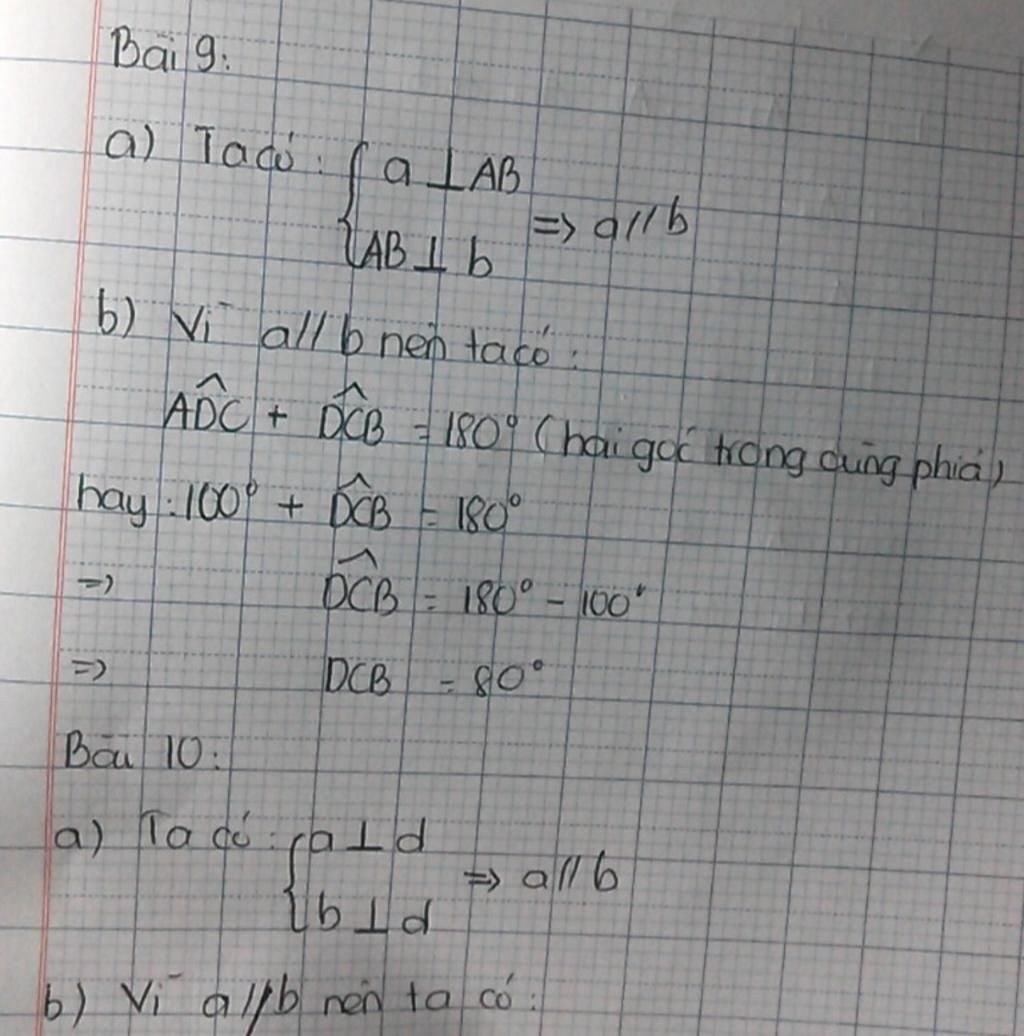 Bài 9:
a) Ta có: { a ⊥ AB
AB ⊥ b => a // b
b) Vì a // b nên ta có:
ADC^ + DCB^ = 180° (hai góc trong cùng phía)
hay: 100° + DCB^ = 180°
=> DCB^ = 180° - 100°
=> DCB = 80°
Bài 10:
a) Ta có: { a ⊥ d
b ⊥ d => a // b
b) Vì a // b nên ta có: